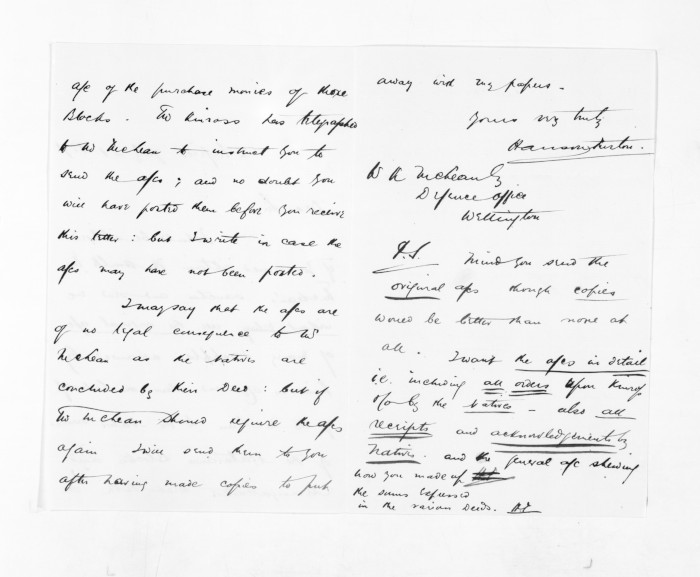 a/c of the purchase monies of those
Blocks. Mr Kinross has telegraphed
to Mr McLean to instruct you to
send the a/cs; and no doubt you
will have posted them before you receive
this letter: but I write in case the
a/cs may have not been posted.
I may say that the a/cs are
of no legal consequence to Mr
McLean as the Natives are
concluded by their Deed: but if
Mr McLean should require the a/cs
again I will send them to you
after having made copies to put
away with my papers.
Yours very truly
Hanson Turton.
McLean Esq
Defence Office
Wellington
P.S. Mind you send the
original a/cs though copies
would be better than none at
all. I want the a/cs in detail
i.e. including all orders upon Kinross
by the Natives - also all
receipts and acknowledgements by
Natives. and the general a/c shewing
how you made up
the sums expressed
in the various Deeds.